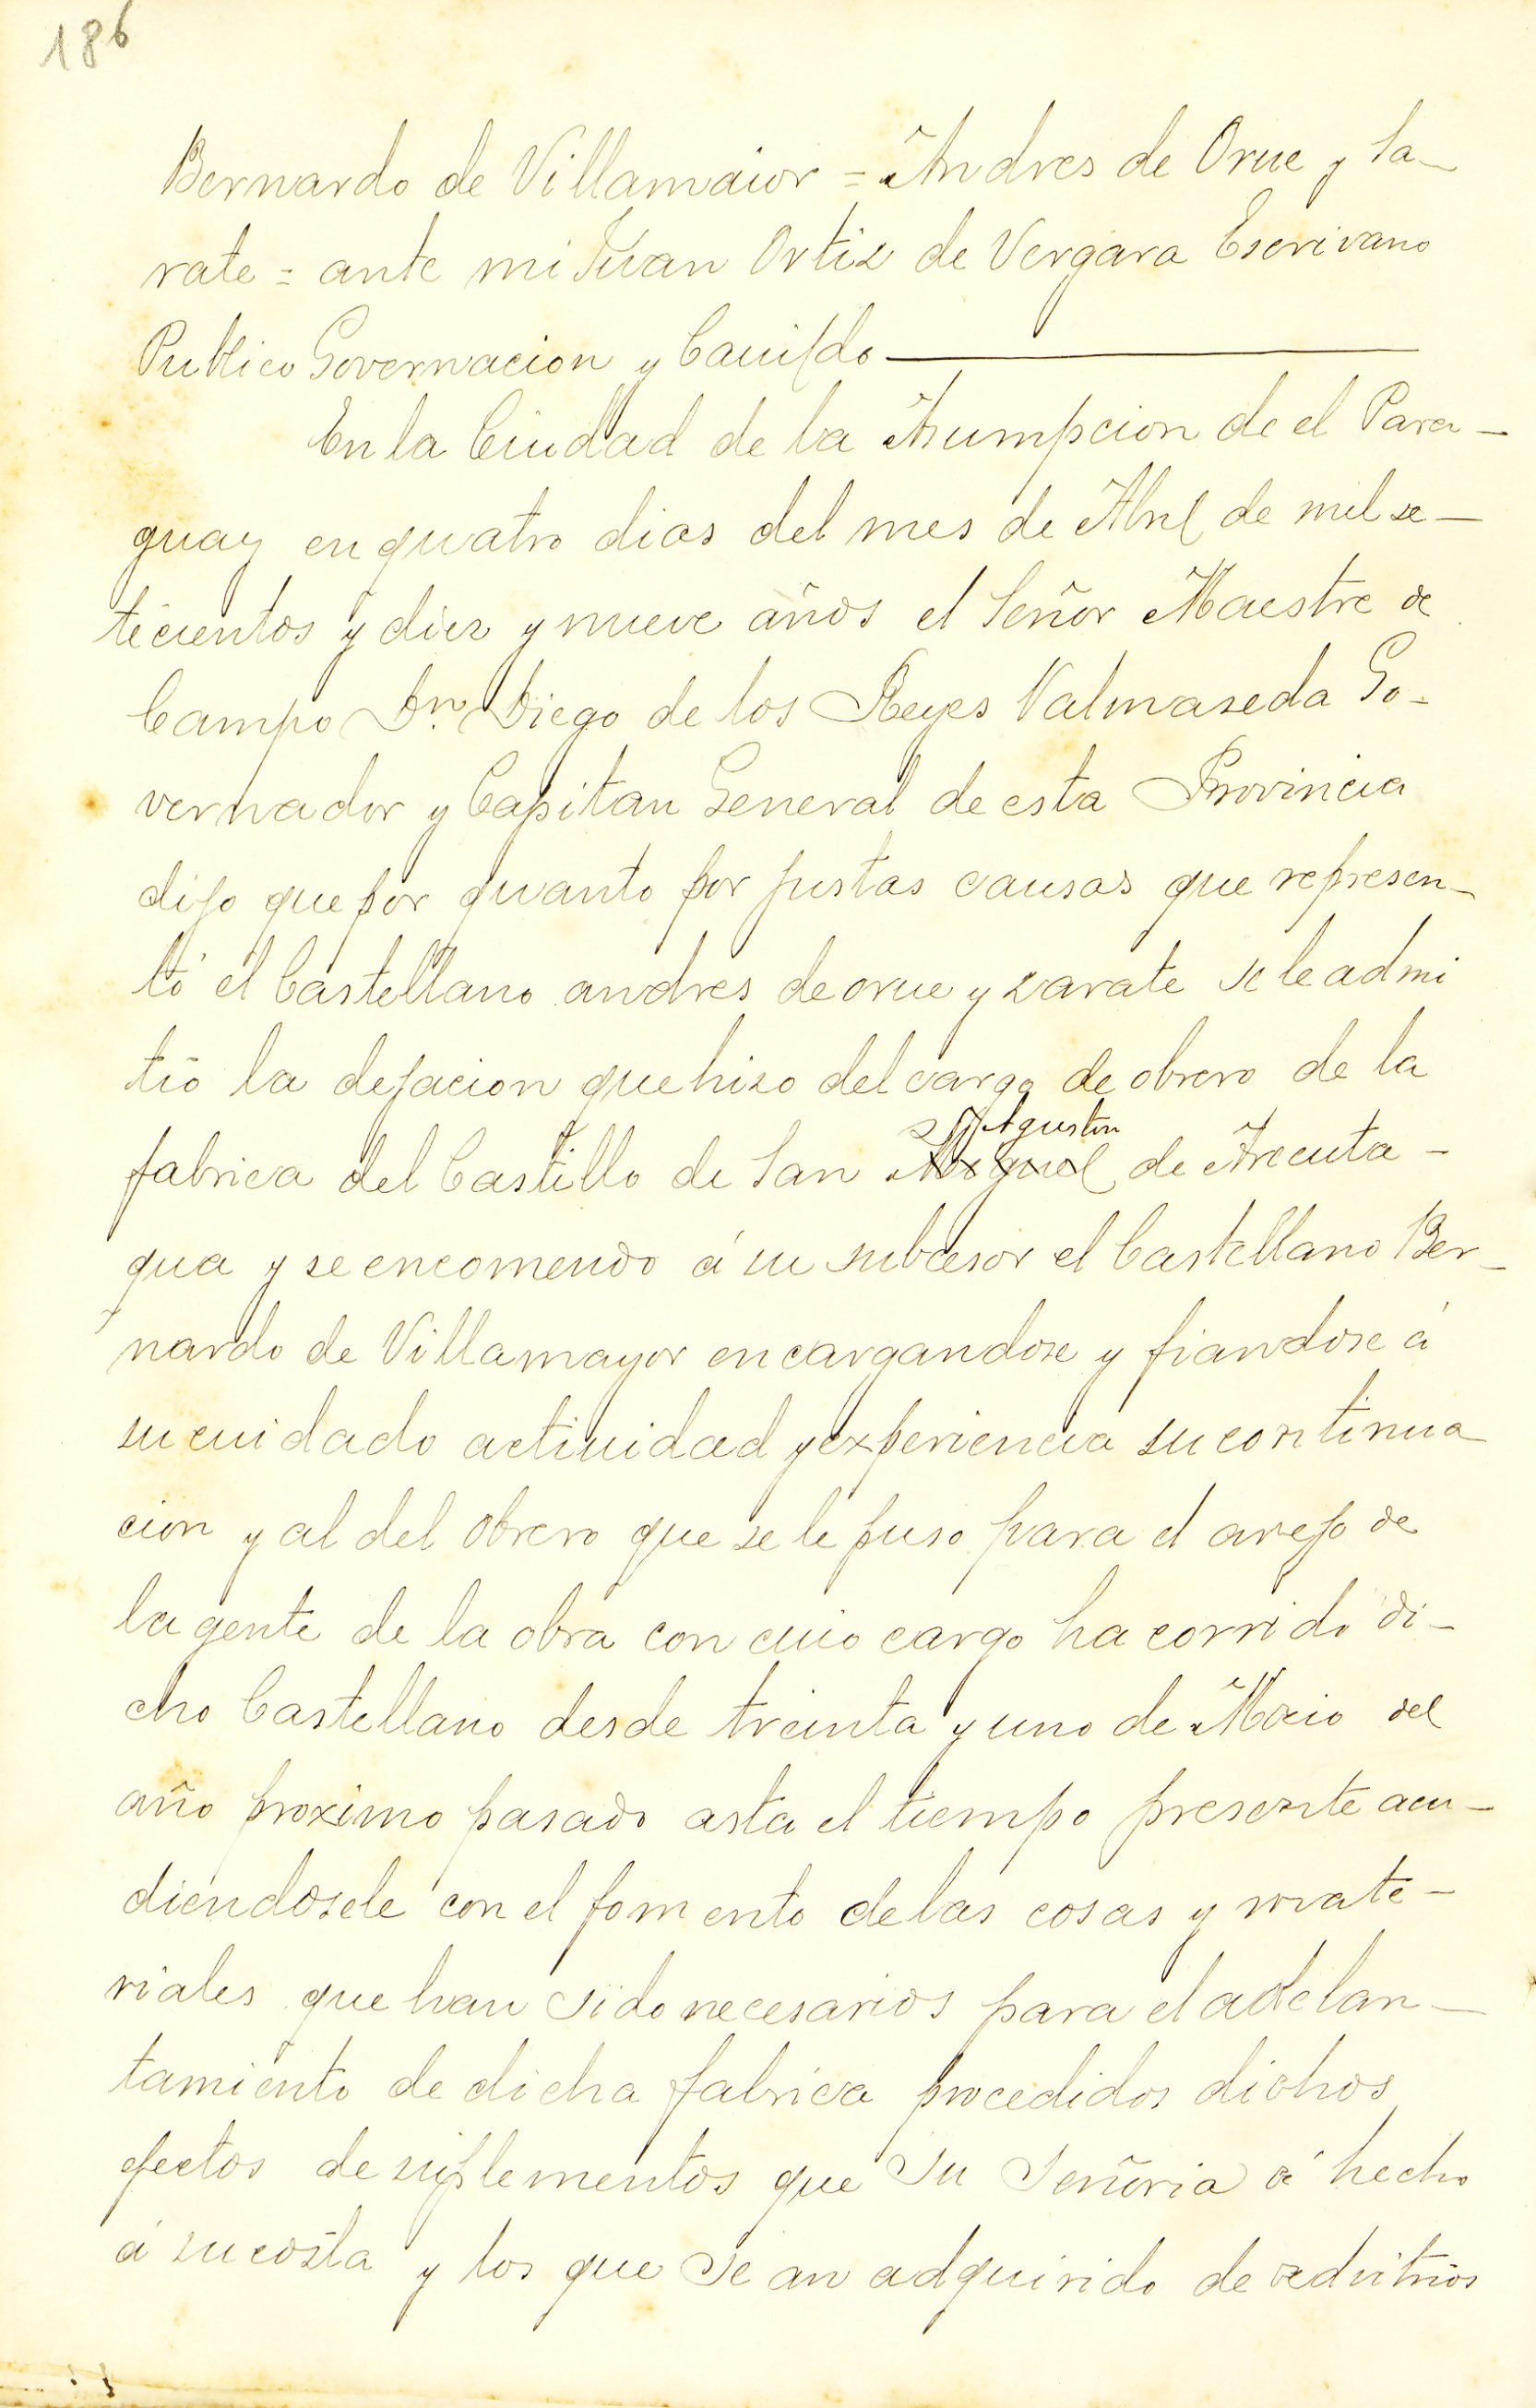 186
Bernardo de Villamaior = Andres de Orue y Sa-
rate = ante mi Juan Ortiz de Vergara Escrivano
Publico Governacion y Cauildo
En la Ciudad de la Asumpcion de el Para-
guay en quatro dias del mes de Abril de mil se-
tecientos y diez y nueve años el Señor Maestre de
Campo Dn. Diego de los Reyes Valmaseda Go-
vernador y Capitan General de esta Provincia
dijo que por quanto por justas causas que represen-
tó el Castellano andres de orue y zarate se le admi
tió la dejacion que hiso del cargo de obrero de la
fabrica del Castillo de San ~~Miguel~~ Agustin de Arecuta-
gua y se encomendo á su subcesor el Castellano Ber-
nardo de Villamayor encargandose y fiandose á
su cuidado actiuidad y experiencia su continua
cion y al del obrero que se le puso para el avejo de
la gente de la obra con cuio cargo ha corrido di-
cho Castellano desde treinta y uno de Maio del
año proximo pasado asta el tiempo presente acu-
diendosele con el fomento de las cosas y mate-
riales que han sido necesarios para el adelan-
tamiento de dicha fabrica procedidos dichos
efectos de suplementos que Su Señoria á hecho
á su costa y los que se an adquirido de advitrios